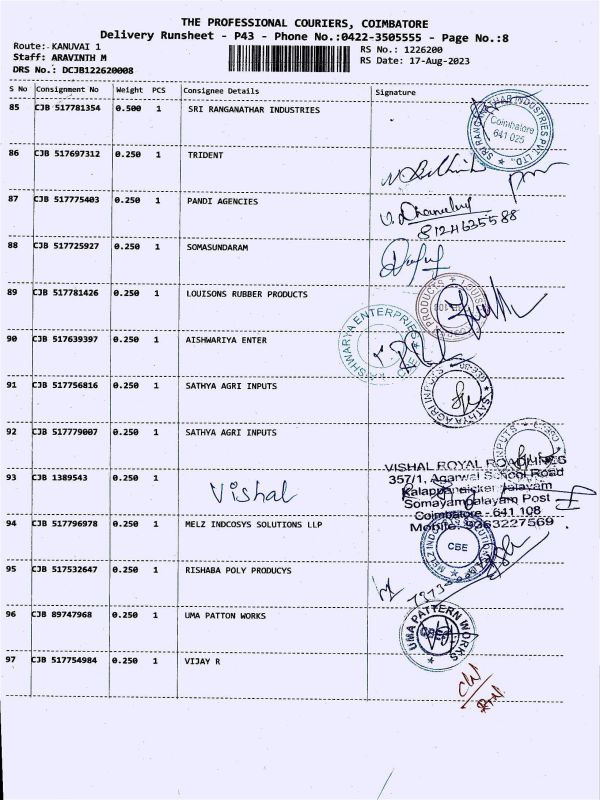 THE PROFESSIONAL COURIERS, COIMBATORE
Delivery Runsheet - P43 - Phone No.:0422-3505555 - Page No.:8
Route: KANUVAI 1
RS No.: 1226200
Staff: ARAVINTH M
RS Date: 17-Aug-2023
DRS No.: DCJB122620008
S No Consignment No Weight PCS Consignee Details Signature
85 CJB 517781354 0.500 1 SRI RANGANATHAR INDUSTRIES
SRI RANGANATHAR INDUSTRIES PVT. LTD.
Coimbatore
641 025
86 CJB 517697312 0.250 1 TRIDENT
87 CJB 517775403 0.250 1 PANDI AGENCIES
8124635588
88 CJB 517725927 0.250 1 SOMASUNDARAM
89 CJB 517781426 0.250 1 LOUISONS RUBBER PRODUCTS
90 CJB 517639397 0.250 1 AISHWARIYA ENTER
AISHWARYA ENTERPRISES
91 CJB 517756816 0.250 1 SATHYA AGRI INPUTS
SATHYA AGRI INPUTS
92 CJB 517779007 0.250 1 SATHYA AGRI INPUTS
93 CJB 1389543 0.250 1
Vishal
VISHAL ROYAL ROADLINES
357/1, Agarwal School Road
Kalappanaicken Palayam
Somayampalayam Post
Coimbatore - 641 108
Mobile: 9363227569
94 CJB 517796978 0.250 1 MELZ INDCOSYS SOLUTIONS LLP
CBE
95 CJB 517532647 0.250 1 RISHABA POLY PRODUCYS
96 CJB 89747968 0.250 1 UMA PATTON WORKS
UMA PATTERN WORKS
97 CJB 517754984 0.250 1 VIJAY R